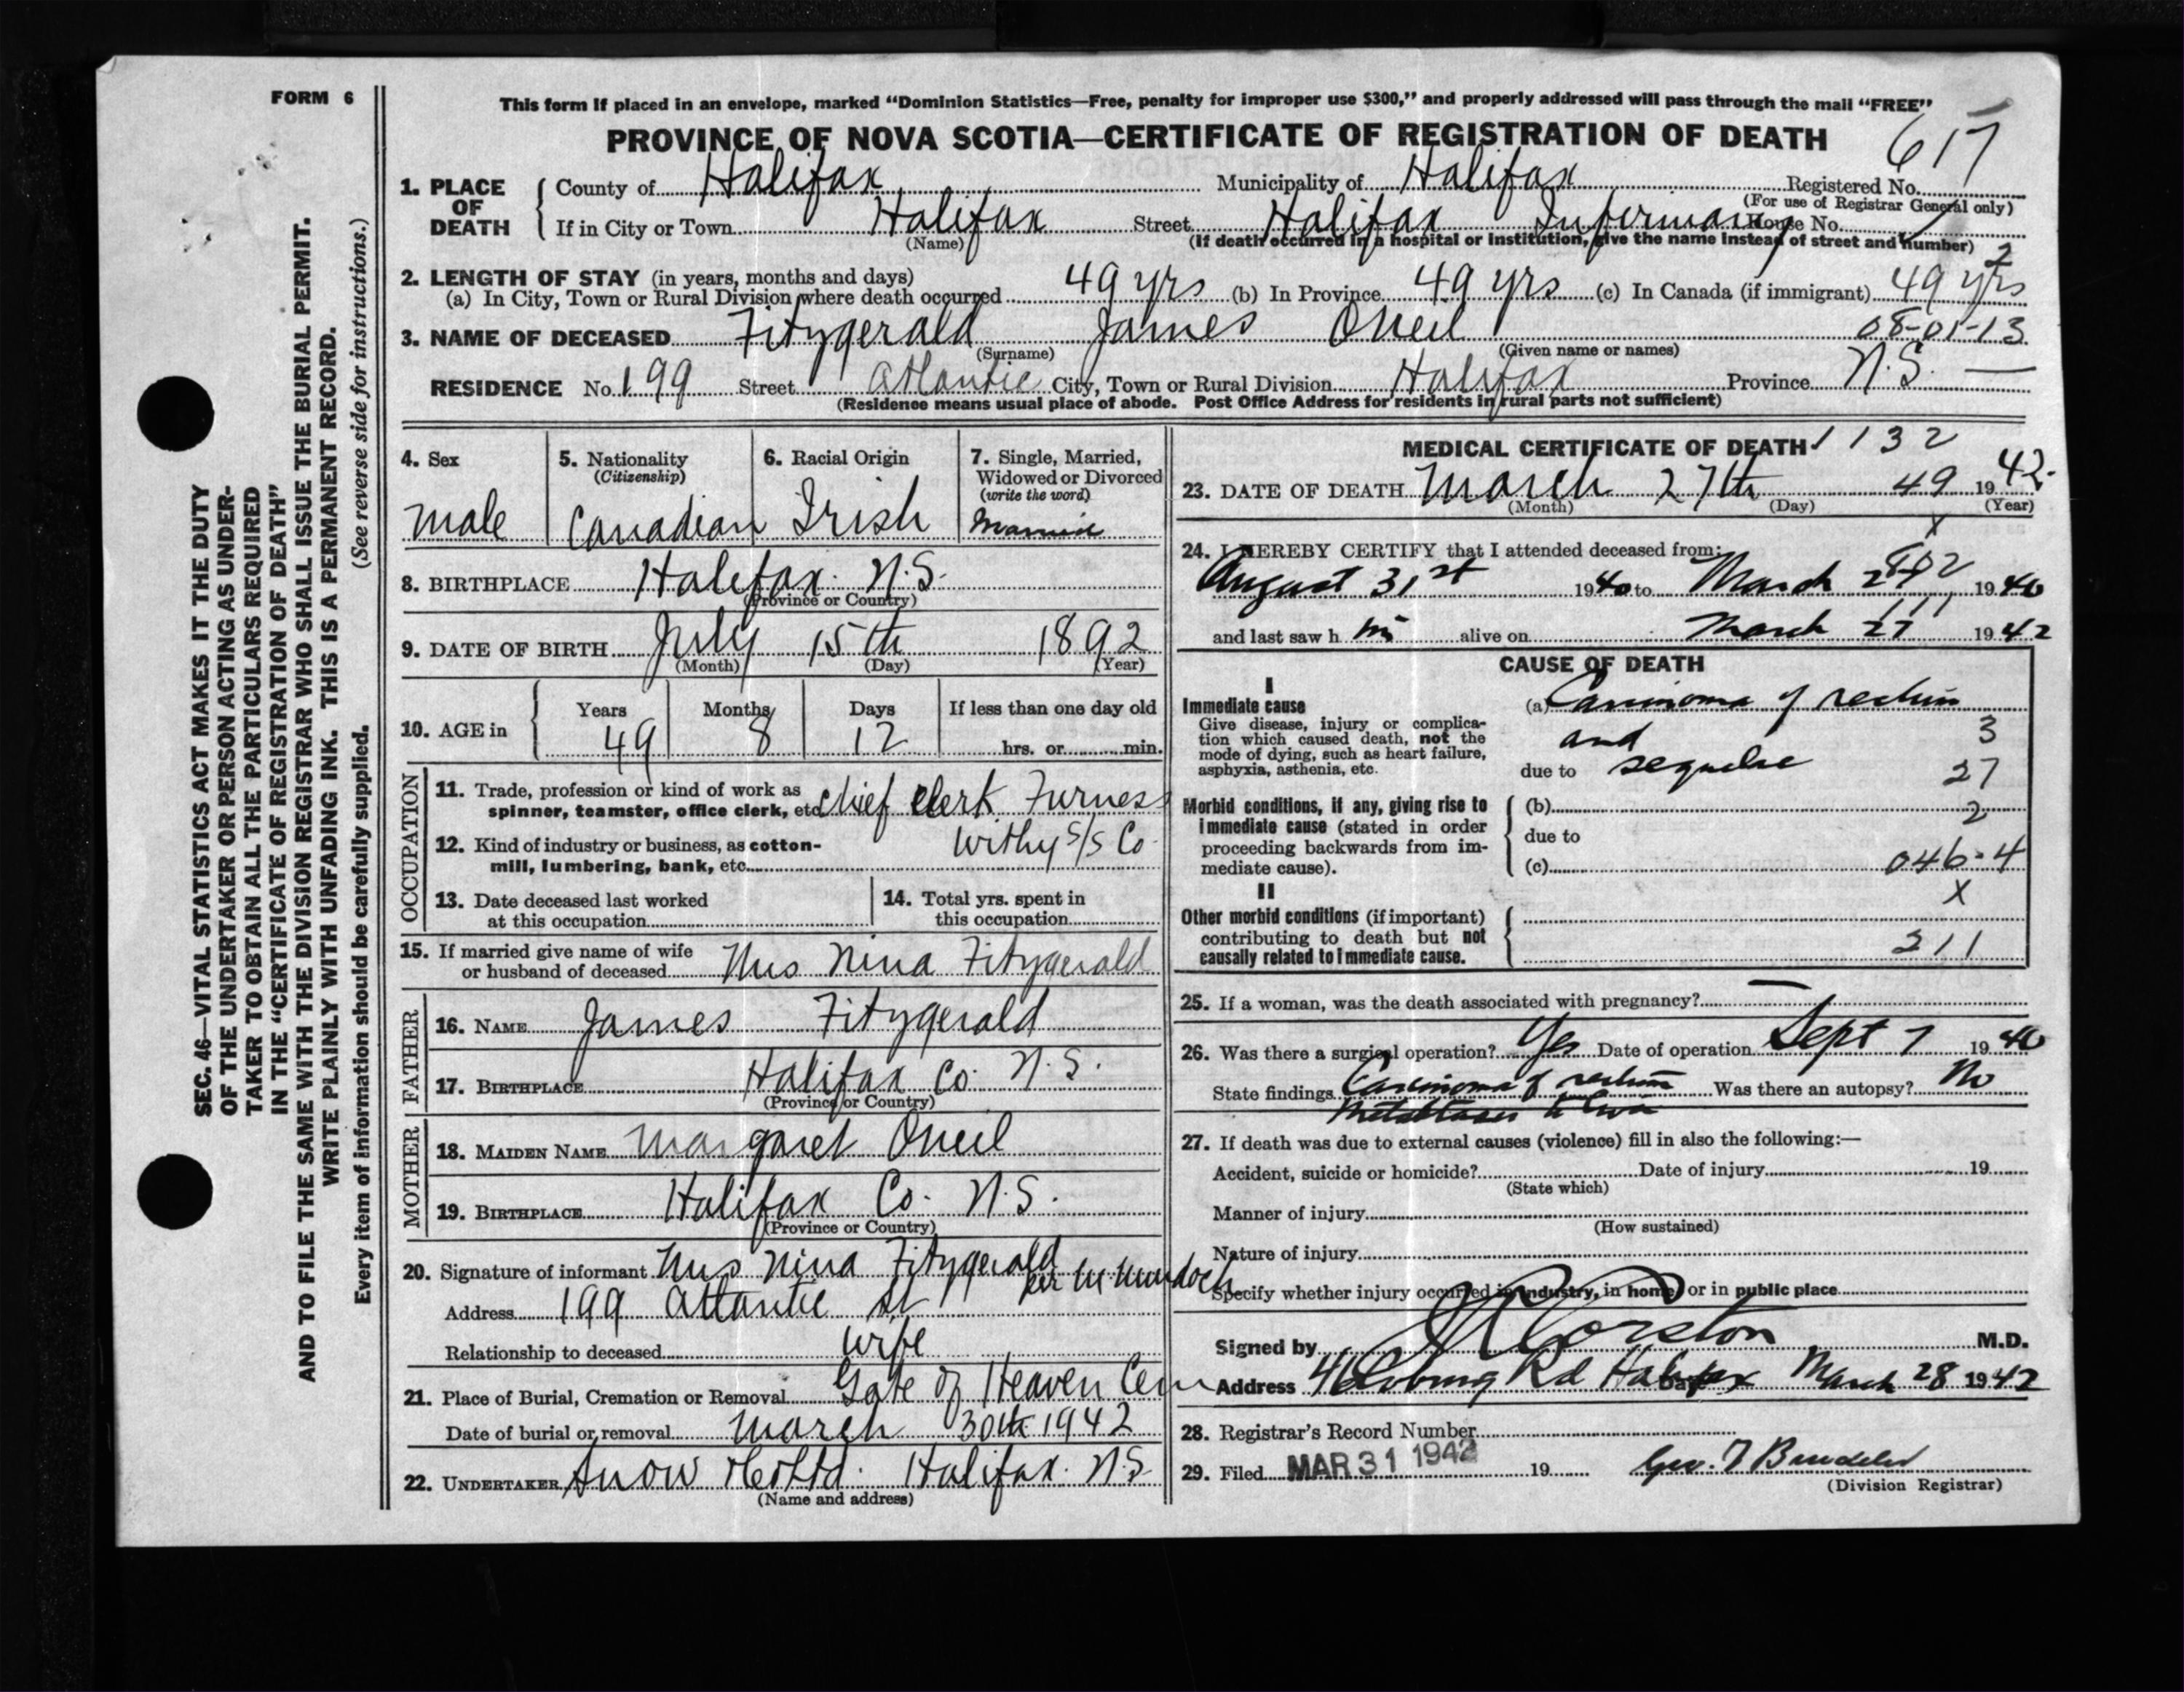 FORM 6
This form if placed in an envelope, marked "Dominion Statistics—Free, penalty for improper use $300," and properly addressed will pass through the mail "FREE"
PROVINCE OF NOVA SCOTIA—CERTIFICATE OF REGISTRATION OF DEATH
617
1. PLACE OF DEATH
County of Halifax Municipality of Halifax Registered No.
(For use of Registrar General only)
If in City or Town Halifax Street Halifax Infirmary House No.
(Name) (If death occurred in a hospital or institution, give the name instead of street and number)
2
2. LENGTH OF STAY (in years, months and days)
(a) In City, Town or Rural Division where death occurred 49 yrs (b) In Province 49 yrs (c) In Canada (if immigrant) 49 yrs
3. NAME OF DECEASED Fitzgerald James Oneil 08-01-13
(Surname) (Given name or names)
RESIDENCE No. 199 Street Atlantic City, Town or Rural Division Halifax Province N.S. —
(Residence means usual place of abode. Post Office Address for residents in rural parts not sufficient)
4. Sex
male
5. Nationality
(Citizenship)
Canadian
6. Racial Origin
Irish
7. Single, Married,
Widowed or Divorced
(write the word)
Married
8. BIRTHPLACE Halifax. N.S.
(Province or Country)
9. DATE OF BIRTH July 15th 1892
(Month) (Day) (Year)
10. AGE in
Years Months Days If less than one day old
49 8 12 hrs. or min.
OCCUPATION
11. Trade, profession or kind of work as
spinner, teamster, office clerk, etc. Chief Clerk Furness
12. Kind of industry or business, as cotton-
mill, lumbering, bank, etc. Withy S/S Co
13. Date deceased last worked
at this occupation
14. Total yrs. spent in
this occupation
15. If married give name of wife
or husband of deceased Mrs Nina Fitzgerald
FATHER
16. NAME James Fitzgerald
17. BIRTHPLACE Halifax Co. N.S.
(Province or Country)
MOTHER
18. MAIDEN NAME Margaret Oneil
19. BIRTHPLACE Halifax Co. N.S.
(Province or Country)
20. Signature of informant Mrs Nina Fitzgerald
per M Murdoch
Address 199 Atlantic St
Relationship to deceased wife
21. Place of Burial, Cremation or Removal Gate of Heaven Cem
Date of burial or removal March 30th 1942
22. UNDERTAKER Snow & Co Ltd. Halifax. N.S.
(Name and address)
MEDICAL CERTIFICATE OF DEATH 1132
23. DATE OF DEATH March 27th 49 1942.
(Month) (Day) (Year)
X
24. I HEREBY CERTIFY that I attended deceased from:
August 31st 1940 to March 1940
and last saw him alive on March 27 1942
CAUSE OF DEATH
I
Immediate cause
Give disease, injury or complica-
tion which caused death, not the
mode of dying, such as heart failure,
asphyxia, asthenia, etc.
(a) Carcinoma of rectum
and 3
due to sequelae 27
Morbid conditions, if any, giving rise to
immediate cause (stated in order
proceeding backwards from im-
mediate cause).
(b)
2
due to
(c) 046-4
X
II
Other morbid conditions (if important)
contributing to death but not
causally related to immediate cause.
211
25. If a woman, was the death associated with pregnancy? —
26. Was there a surgical operation? Yes Date of operation Sept 7 1940
State findings Carcinoma of rectum Was there an autopsy? No
Metastases to liver
27. If death was due to external causes (violence) fill in also the following:—
Accident, suicide or homicide? Date of injury 19
(State which)
Manner of injury
(How sustained)
Nature of injury
Specify whether injury occurred in industry, in home, or in public place
Signed by Corston M.D.
Address 46 Coburg Rd Halifax Date March 28 1942
28. Registrar's Record Number
29. Filed MAR 31 1942 19
(Division Registrar)
SEC. 46—VITAL STATISTICS ACT MAKES IT THE DUTY
OF THE UNDERTAKER OR PERSON ACTING AS UNDER-
TAKER TO OBTAIN ALL THE PARTICULARS REQUIRED
IN THE "CERTIFICATE OF REGISTRATION OF DEATH"
AND TO FILE THE SAME WITH THE DIVISION REGISTRAR WHO SHALL ISSUE THE BURIAL PERMIT.
WRITE PLAINLY WITH UNFADING INK. THIS IS A PERMANENT RECORD.
Every item of information should be carefully supplied. (See reverse side for instructions.)